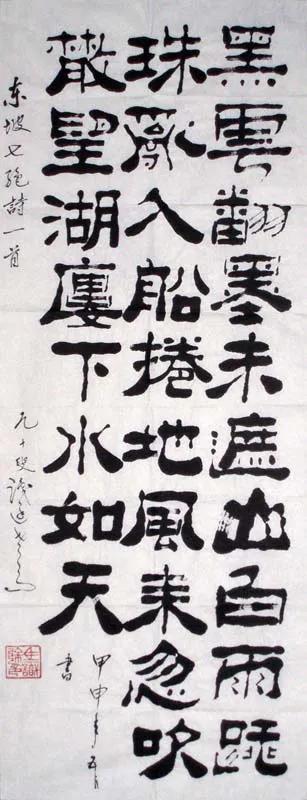 黑雲翻墨未遮山白雨跳
珠亂入船捲地風来忽吹
散望湖廔下水如天
東坡七絕詩一首
甲申年五月
書
九十叟